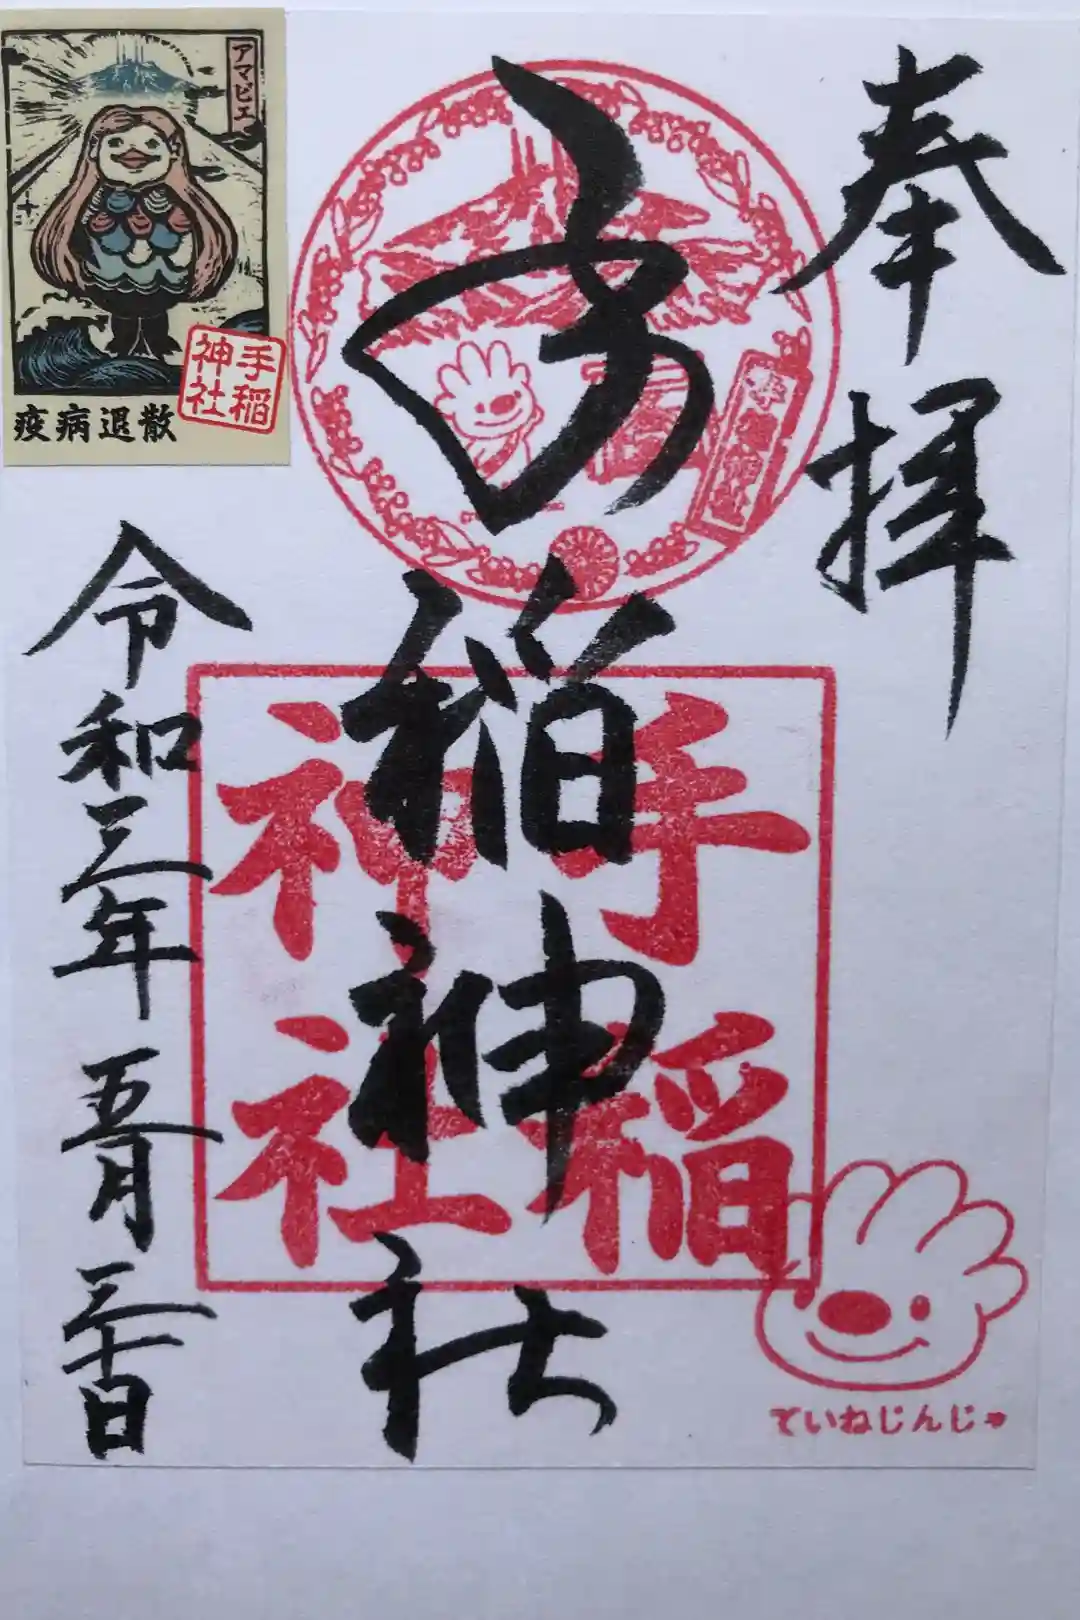 奉拝
手稲神社
手稲神社
令和三年五月三十日
アマビエ
手稲神社
疫病退散
ていねじんじゃ